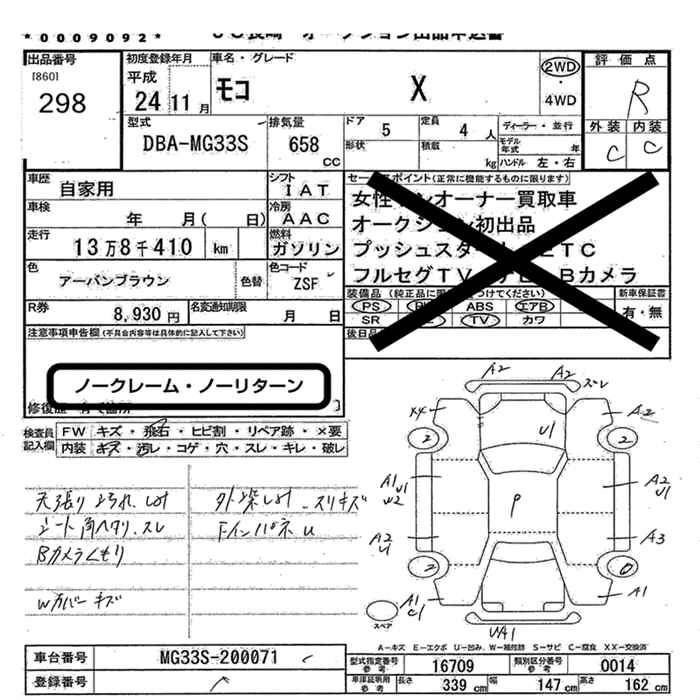 *0009092*
JU長崎 オークション出品申込書
出品番号
[860]
298
初度登録年月
平成
24 11月
車名・グレード
モコ X
2WD
・
4WD
評価点
R
外装 内装
C C
型式
DBA-MG33S
排気量
658
CC
ドア 5
定員 4 人
形状
積載 kg
ディーラー・並行
モデル年式 年
ハンドル 左・右
車歴
自家用
シフト
IAT
車検
年 月( 日)
冷房
AAC
走行
13万8千410 km
燃料
ガソリン
色
アーバンブラウン
色替
色コード
ZSF
R券
8,930円
名変通知期限
月 日
セールスポイント(正常に機能するものに限ります)
女性ワンオーナー買取車
オークション初出品
プッシュスタート ETC
フルセグTV ナビ Bカメラ
装備品
PS ABS エアB
SR TV カワ
新車保証書
有・無
後日品
注意事項申告欄(不具合内容等は具体的に記入して下さい)
ノークレーム・ノーリターン
修復歴 有で箇所
検査員
記入欄
FW キズ・飛石・ヒビ割・リペア跡・×要
内装 キズ・汚レ・コゲ・穴・スレ・キレ・破レ
天張り 汚れ.しみ
シート角ヘタリ.スレ
Bカメラくもり
Wカバー キズ
外装しみ.スリキズ
Fインパネ U
A2 A2 スレ
X4 A2
2 2
U1
A1 U1
W2
A2
U1
P
A2
U1
A3
2 0
A1
C1
A1
UA1
スペア
A-キズ E-エクボ U-凹み、W-補修跡 S-サビ C-腐食 XX-交換済
車台番号
MG33S-200071
登録番号
型式指定番号
参考
16709
類別区分番号
参考
0014
車庫証明用
参考
長さ 339cm 幅 147cm 高さ 162cm